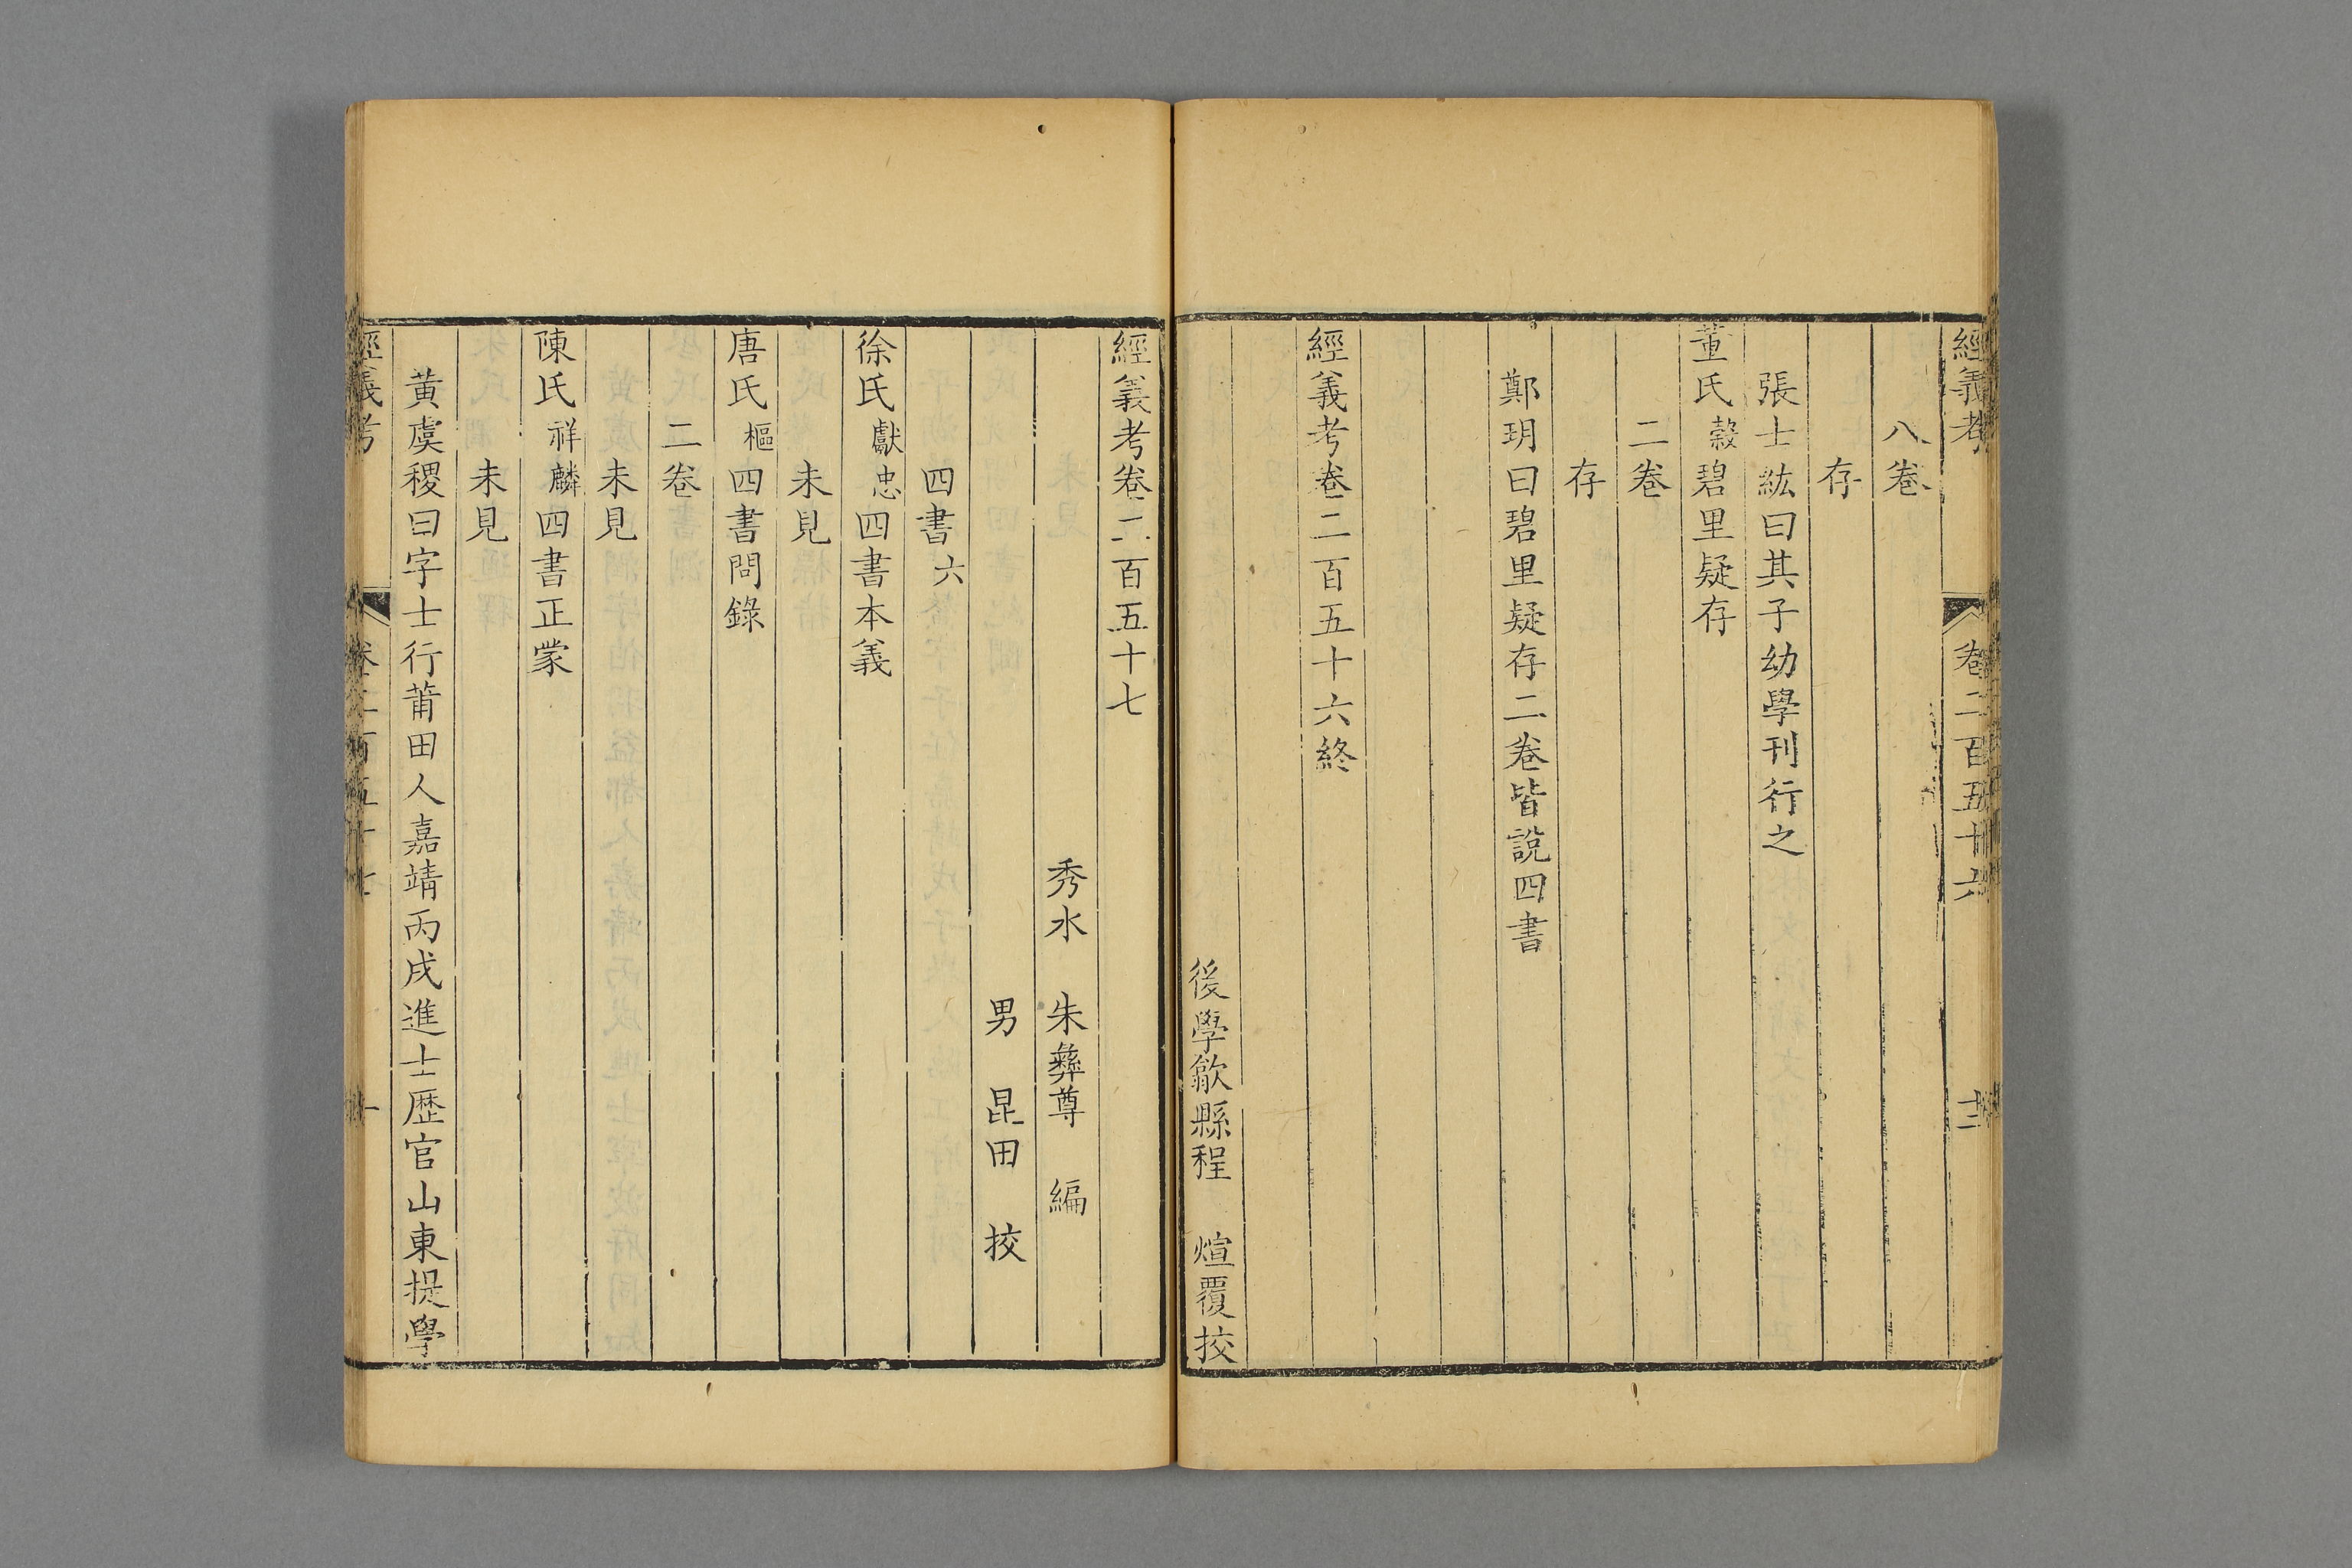 經義考
卷二百五十六
十二
八卷
存
張士紘曰其子幼學刊行之
董氏穀碧里疑存
二卷
存
鄭玥曰碧里疑存二卷皆說四書
經義考卷二百五十六終
後學歙縣程 煊覆挍
經義考卷二百五十七
秀水 朱彝尊 編
男 昆田 挍
四書六
徐氏獻忠四書本義
未見
唐氏樞四書問錄
二卷
未見
陳氏祥麟四書正蒙
未見
黃虞稷曰字士行莆田人嘉靖丙戌進士歷官山東提學
經義考
卷二百五十七
一